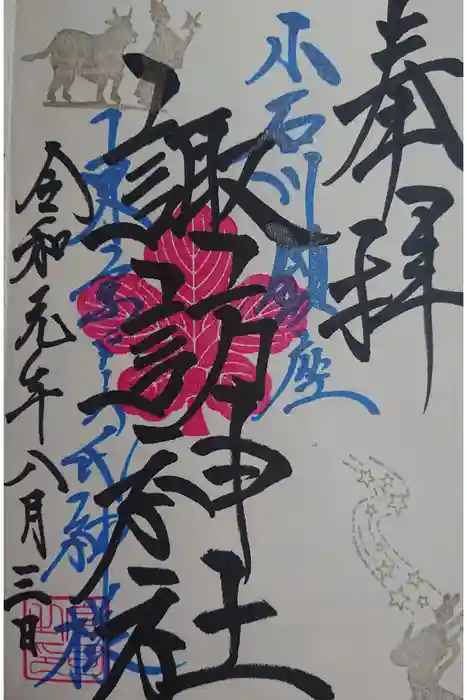 奉拝
小石川 座
諏訪神社
氏神様
令和元年八月三日